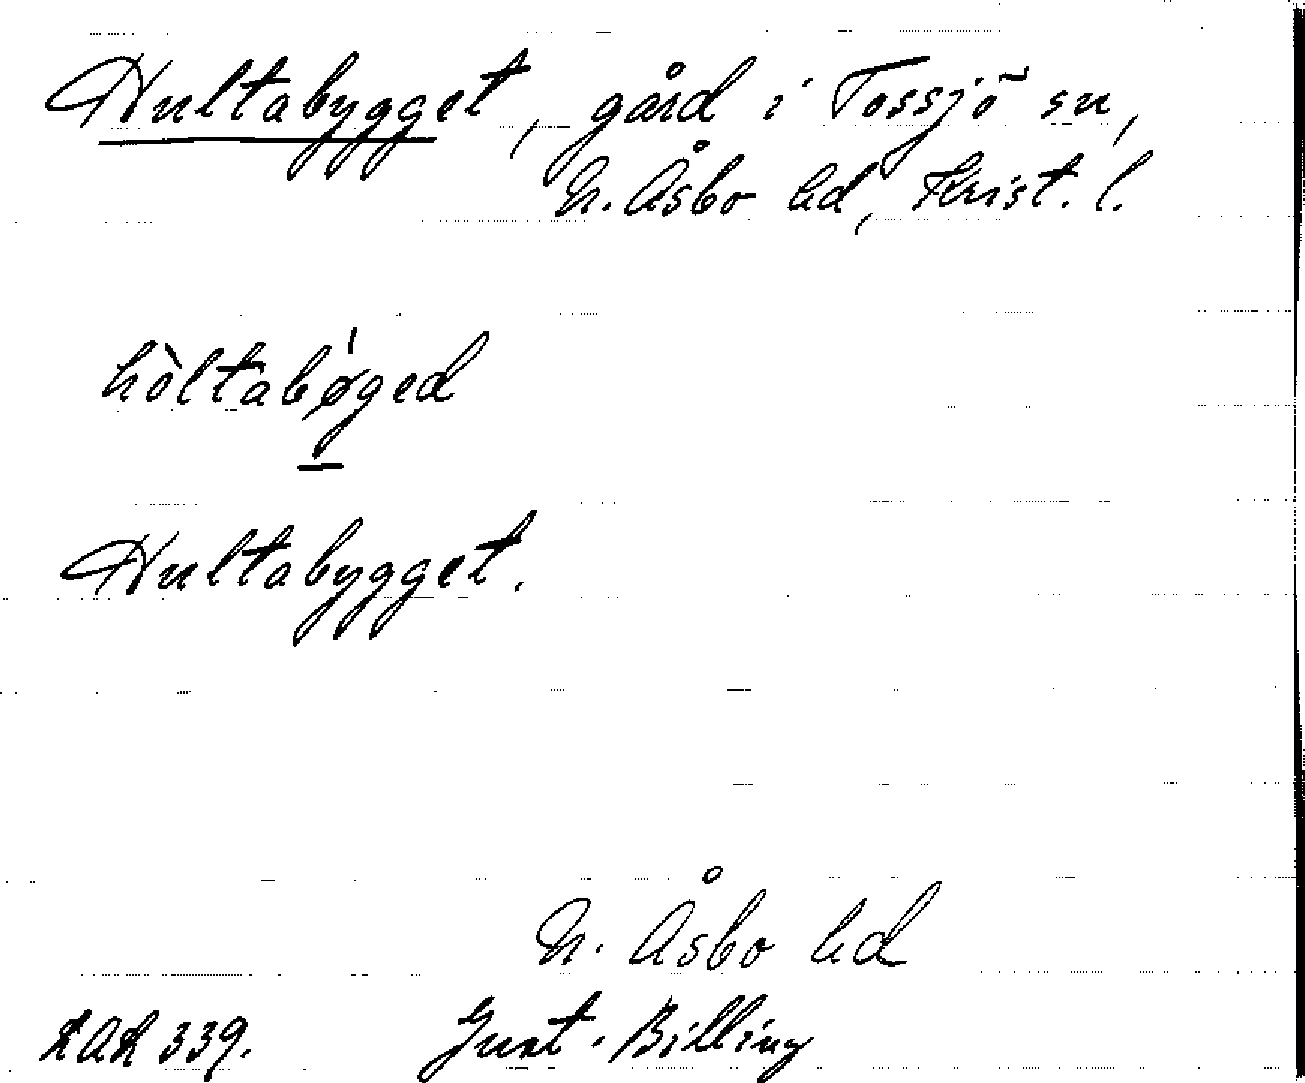 Hultabygget, gård i Tossjö sn,
N. Åsbo hd, Krist. l.
hòltabǿged
Hultabygget.
N. Åsbo hd
LAL 339. Gust. Billing